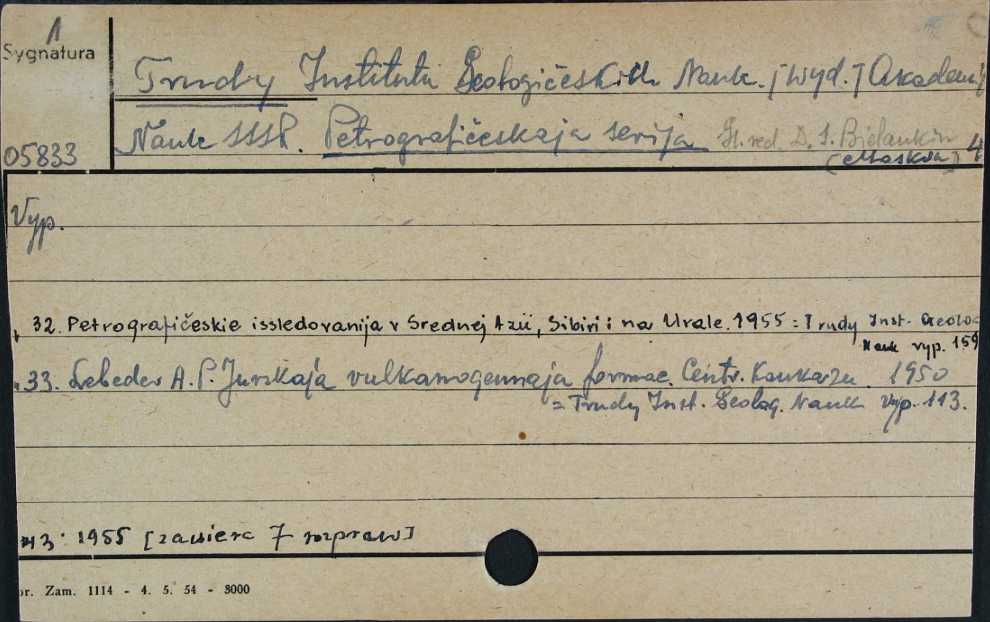 1
Sygnatura
05833
Trudy Instituta Geologičeskich Nauk. [wyd.] Akademij
Nauk SSSR. Petrografičeskaja serija Gl. red. D. S. Bielankin
(Moskva) 4
Vyp.
32. Petrografičeskie issledovanija v Srednej Azii, Sibiri i na Urale. 1955 = Trudy Inst. Geolog
Nauk vyp. 159
33. Lebedev A. P. Jurskaja vulkanogennaja formac. Centr. Kavkaza. 1950
= Trudy Inst. Geolog. Nauk Vyp. 113.
43: 1955 [zawiera 7 rozpraw]
or. Zam. 1114 - 4. 5. 54 - 3000